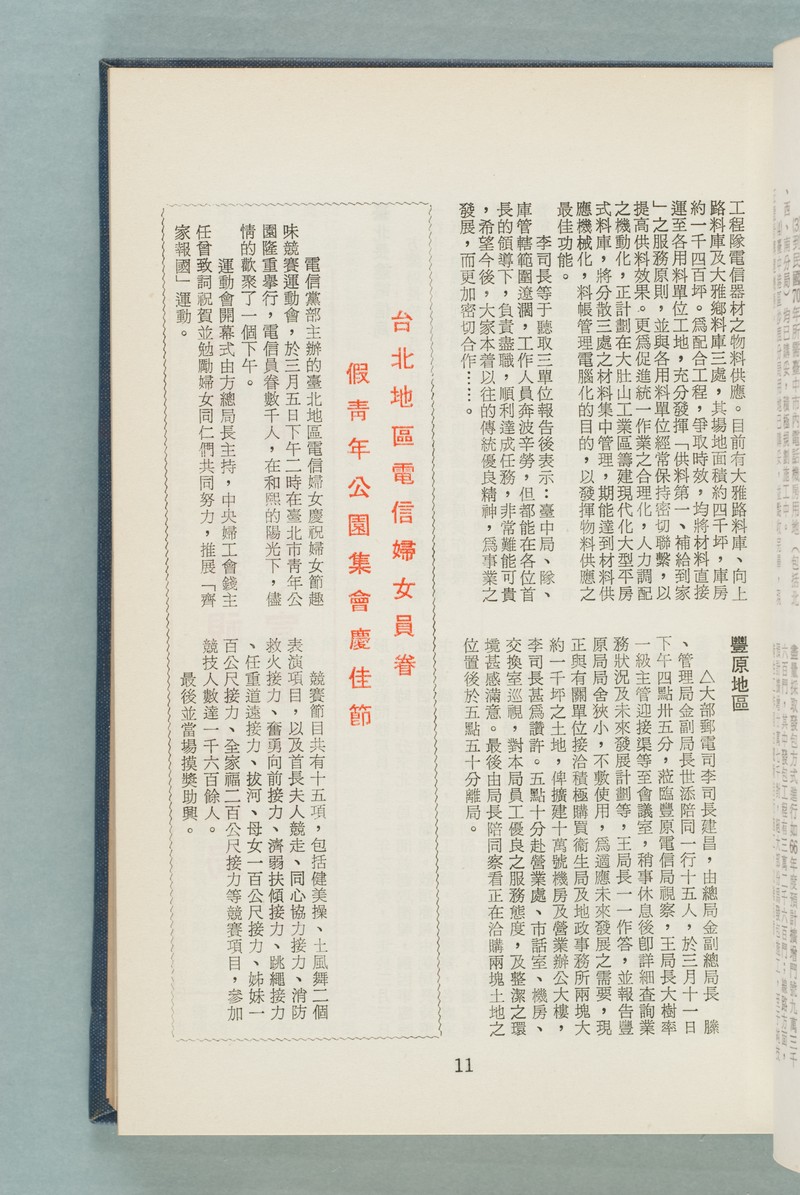 工程隊電信器材之物料供應。目前有大雅路料庫、向上
路料庫及大雅鄉料庫三處，其場地面積約四千坪，庫房
約一千四百坪。爲配合工程，爭取時效，均將材料直接
運至各用料單位工地，充分發揮「供料第一、補給到家
」之服務原則，並與各用料單位經常保持密切聯繫，以
提高供料效果。更爲促進統一作業之合理化，人力調配
之機動化，正計劃在大肚山工業區籌建現代化大型平房
式料庫，將分散三處之材料集中管理，期能達到材料供
應機械化，料帳管理電腦化的目的，以發揮物料供應之
最佳功能。
李司長等于聽取三單位報告後表示：臺中局、隊、
庫管轄範圍遼濶，工作人員奔波辛勞，但都能在各位首
長的領導下，負責盡職，順利達成任務，非常難能可貴
，希望今後，大家本着以往的傳統優良精神，爲事業之
發展，而更加密切合作……。
豐原地區
△大部郵電司李司長建昌，由總局金副總局長　䲢
、管理局金副局長世添陪同一行十五人，於三月十一日
下午四點卅五分，蒞臨豐原電信局視察，王局長大樹率
一級主管迎接渠等至會議室，稍事休息後卽詳細查詢業
務狀況及未來發展計劃等，王局長一一作答，並報告豐
原局局舍狹小，不敷使用，爲適應未來發展之需要，現
正與有關單位接洽積極購買衞生局及地政事務所兩塊大
約一千坪之土地，俾擴建十萬號機房及營業辦公大樓，
李司長甚爲讚許。五點十分赴營業處、市話室、機房、
交換室巡視，對本局員工優良之服務態度，及整潔之環
境甚感滿意。最後由局長陪同察看正在洽購兩塊土地之
位置後於五點五十分離局。
台北地區電信婦女員眷
假靑年公園集會慶佳節
電信黨部主辦的臺北地區電信婦女慶祝婦女節趣
味競賽運動會，於三月五日下午二時在臺北市靑年公
園隆重舉行，電信員眷數千人，在和熙的陽光下，儘
情的歡聚了一個下午。
運動會開幕式由方總局長主持，中央婦工會錢主
任曾致詞祝賀並勉勵婦女同仁們共同努力，推展「齊
家報國」運動。
競賽節目共有十五項，包括健美操、土風舞二個
表演項目，以及首長夫人競走、同心協力接力、消防
救火接力、奮勇向前接力、濟弱扶傾接力、跳繩接力
、任重道遠接力、拔河、母女一百公尺接力、姊妹一
百公尺接力、全家福二百公尺接力等競賽項目，參加
競技人數達一千六百餘人。
最後並當場摸獎助興。
11